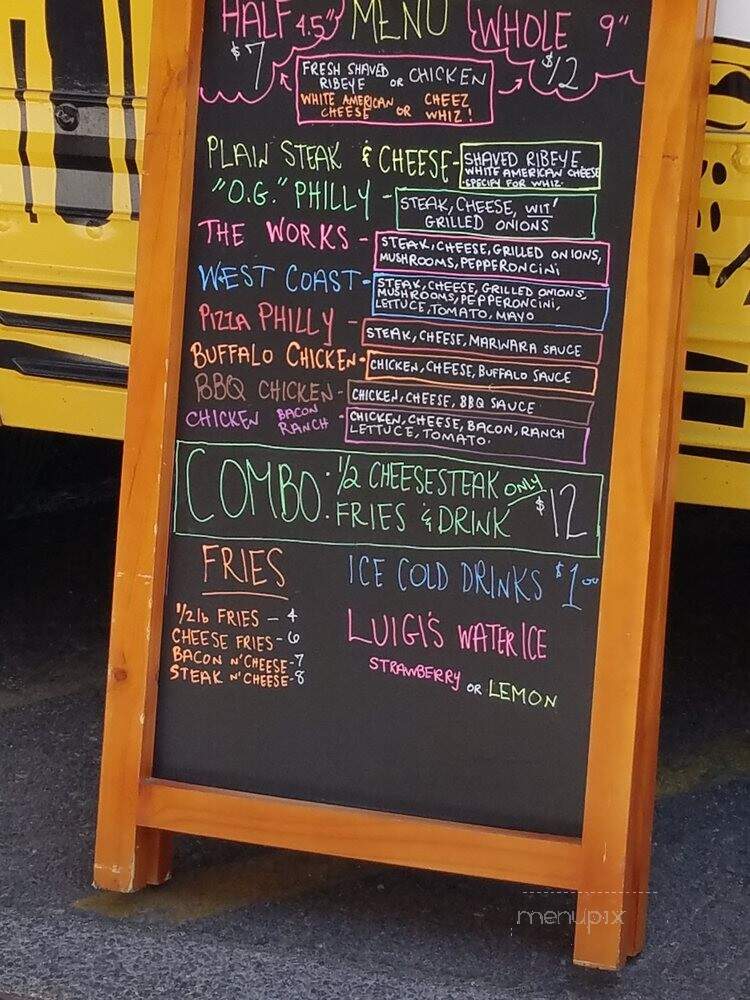 HALF 4.5" MENU WHOLE 9"
$7 $12
FRESH SHAVED RIBEYE OR CHICKEN
WHITE AMERICAN CHEESE OR CHEEZ WHIZ!
PLAIN STEAK & CHEESE - SHAVED RIBEYE
WHITE AMERICAN CHEESE
SPECIFY FOR WHIZ.
"O.G." PHILLY - STEAK, CHEESE, WIT'
GRILLED ONIONS
THE WORKS - STEAK, CHEESE, GRILLED ONIONS,
MUSHROOMS, PEPPERONCINI
WEST COAST - STEAK, CHEESE, GRILLED ONIONS,
MUSHROOMS, PEPPERONCINI,
LETTUCE, TOMATO, MAYO
PIZZA PHILLY - STEAK, CHEESE, MARINARA SAUCE
BUFFALO CHICKEN - CHICKEN, CHEESE, BUFFALO SAUCE
BBQ CHICKEN - CHICKEN, CHEESE, BBQ SAUCE
CHICKEN BACON RANCH - CHICKEN, CHEESE, BACON, RANCH
LETTUCE, TOMATO.
COMBO: 1/2 CHEESESTEAK ONLY $12
FRIES & DRINK
FRIES
1/2 lb FRIES - 4
CHEESE FRIES - 6
BACON N' CHEESE - 7
STEAK N' CHEESE - 8
ICE COLD DRINKS $1.00
LUIGI'S WATER ICE
STRAWBERRY OR LEMON
menupix